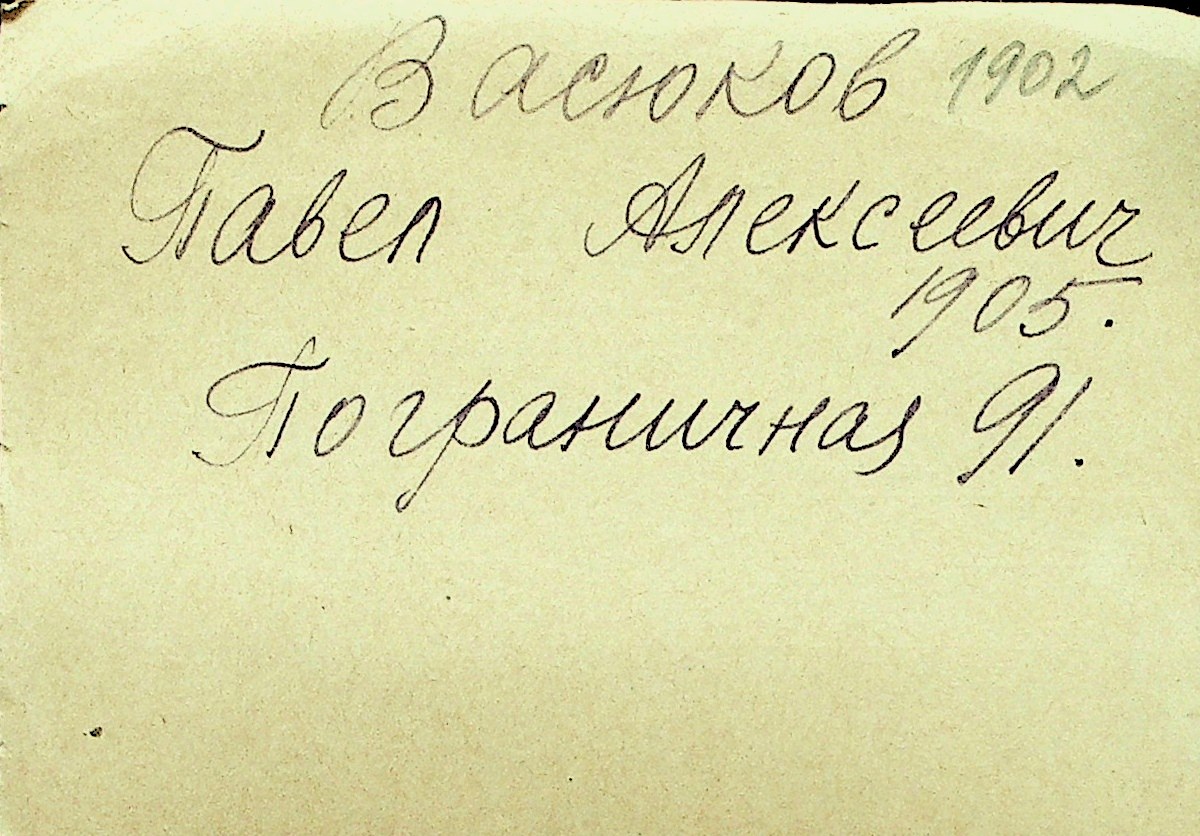 Васюков 1902
Павел Алексеевич
1905.
Пограничная 91.